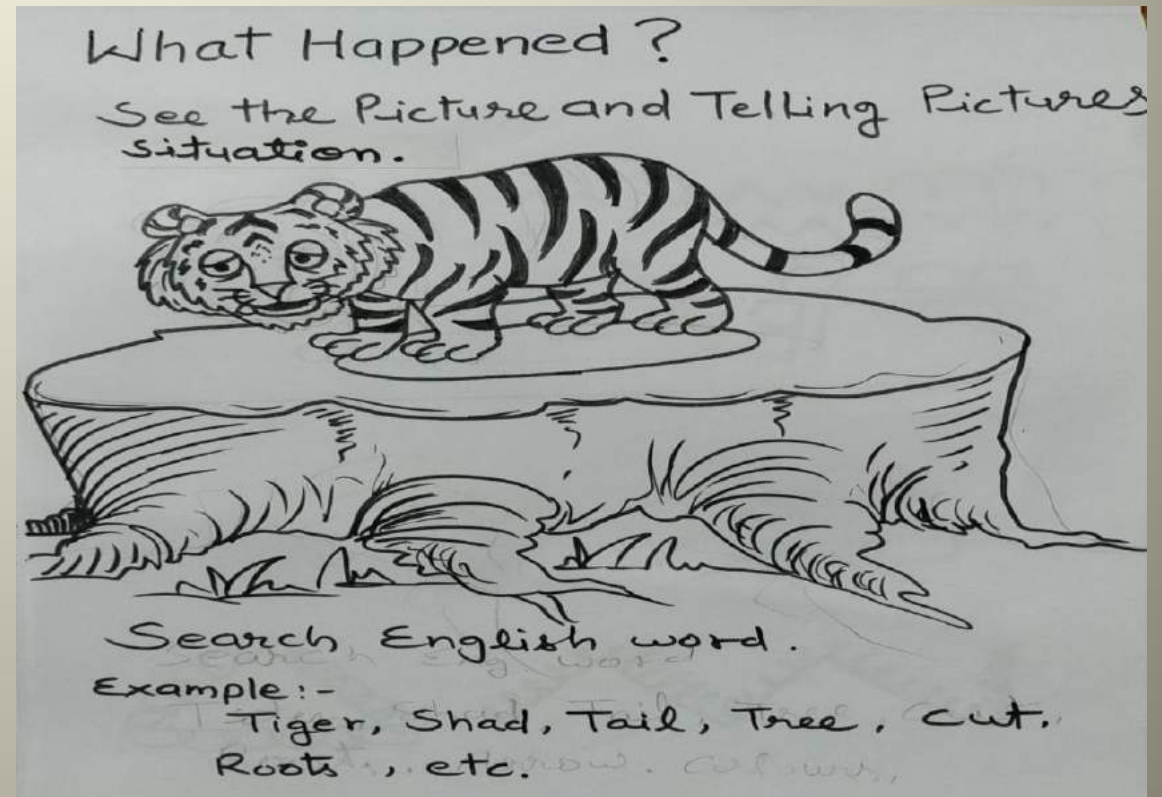 What Happened ?
See the Picture and Telling Pictures
situation.
Search English word.
Example:-
Tiger, Shad, Tail, Tree, cut.
Roots, etc.